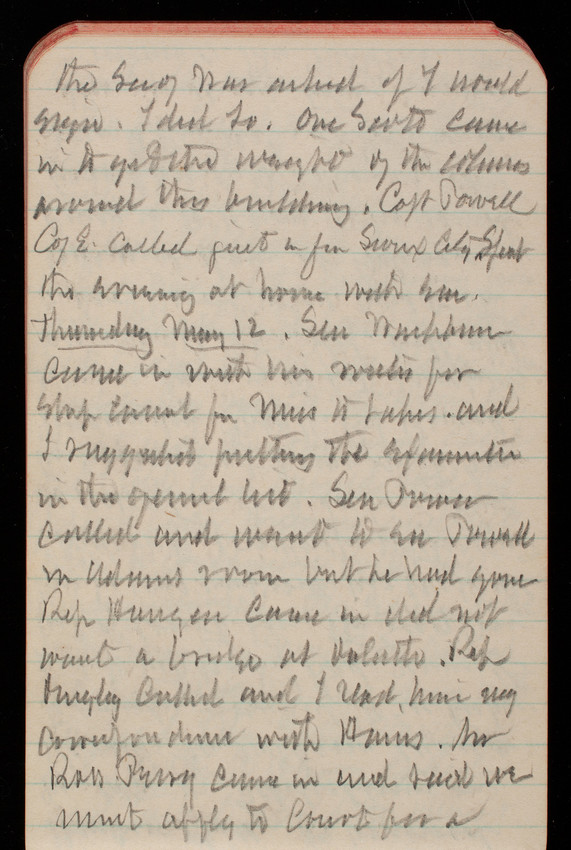 the Secy War asked if I would
sign. I did so. One Scott came
in to get the weight of the columns
around this building. Capt Powell
Co E. Called just in from Sioux City Spent
the evening at home with
Thursday May 12. Sen Washburn
came in with his
for Miss and
I suggested putting the
in the general bill. Sen Power
called and went to see Powell
in Adams room but he had gone
Rep came in did not
want a bridge at Duluth. Rep
Dingley Called and I read him my
correspondence with Hains. Mr
Ross Perry came in and said we
must apply to Court for a